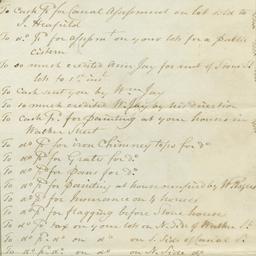 To Cash pd for Canal Assessment on lot sold to
J. Heafield
To do pd for assessmt on your lots for a public
cistern
To so much credited Wm Jay for
lots to 1st inst
To Cash sent you by Wm Jay
To so much credited W Jay by his direction
To Cash pd for painting at your houses in
Walker Street
To do pd for iron Chimney tops for do
To do pd for Grates for do
To do pd for Pans for do
To do pd for painting at house occupied by W
To do pd for Insurance on 4 houses
To do pd for flagging before Stone house
To do pd tax on your lots on N. Side of Walker St
To do pd do on do on S. Side of Canal St
To do pd do on do on N. Side do